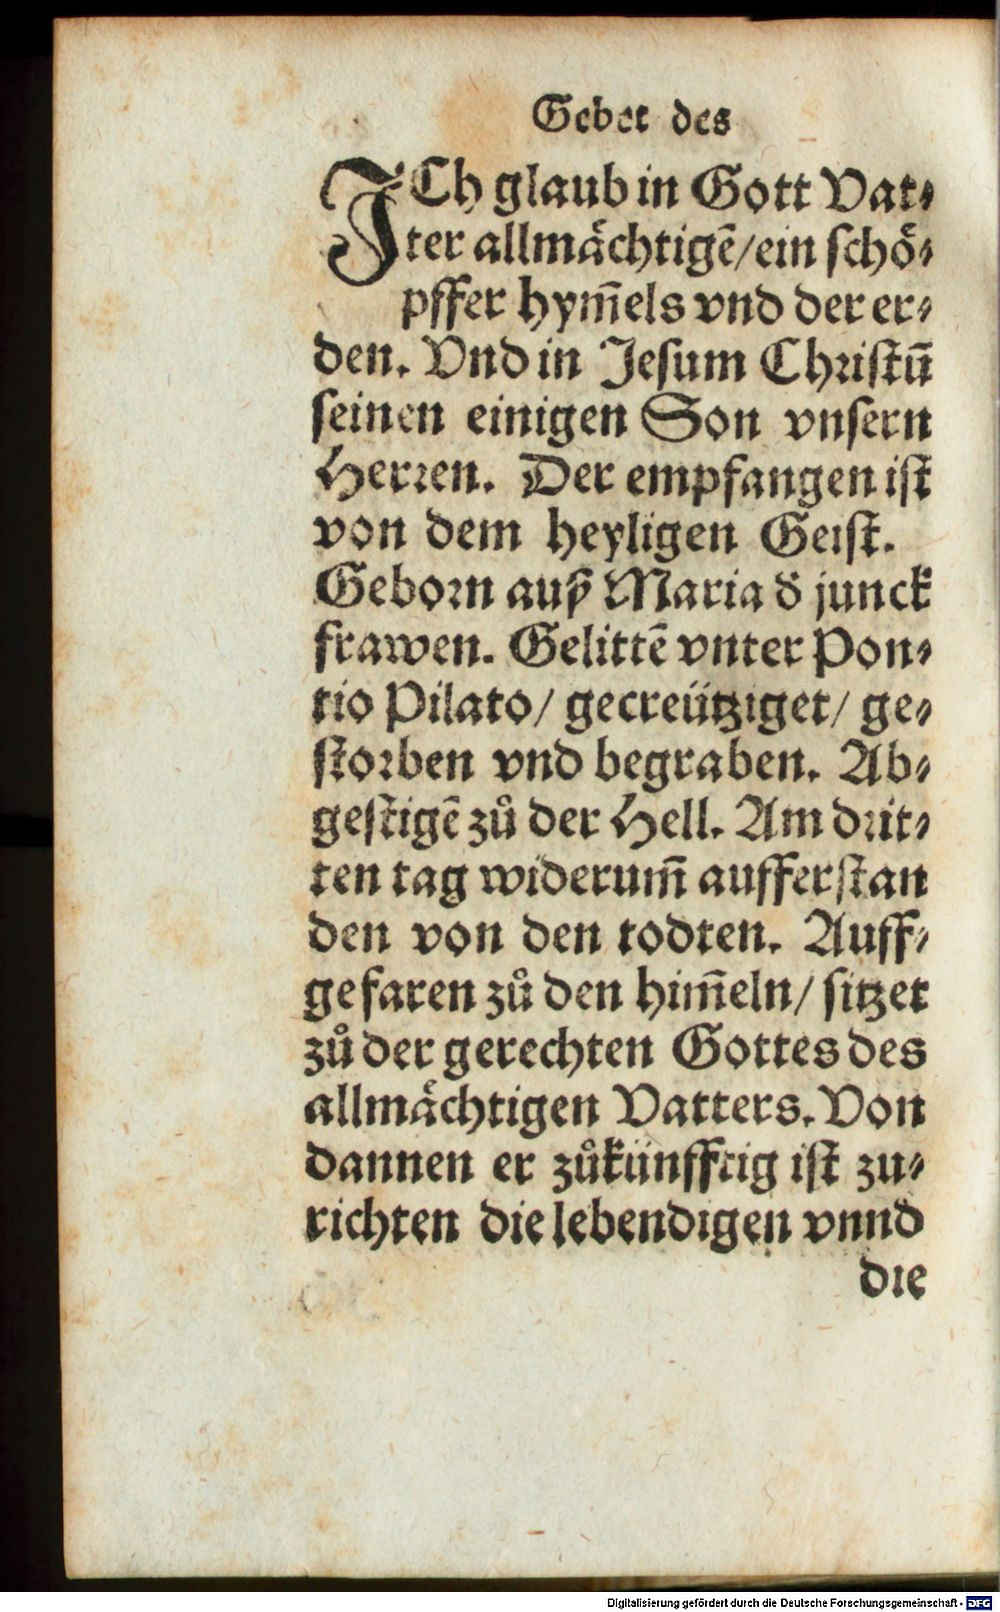 Gebet des
ICh glaub in Gott Vat⸗
ter allmaͤchtigẽ/ein ſchoͤ⸗
pffer hym̃els vnd der er⸗
den. Vnd in Jeſum Chriſtũ
ſeinen einigen Son vnſern
Herꝛen. Der empfangen iſt
von dem heyligen Geiſt.
Geboꝛn auß Maria d̕ junck
frawen. Gelittẽ vnter Pon⸗
tio Pilato/ gecreütziget/ ge⸗
ſtoꝛben vnd begraben. Ab⸗
geſtigẽ zuͦ der Hell. Am dꝛit⸗
ten tag widerum̃ aufferſtan
den von den todten. Auff⸗
gefaren zuͦ den him̃eln/ ſitzet
zuͦ der gerechten Gottes des
allmaͤchtigen Vatters. Von
dannen er zuͦkünfftig iſt zu⸗
richten die lebendigen vnnd
die
Digitalisierung gefördert durch die Deutsche Forschungsgemeinschaft - DFG